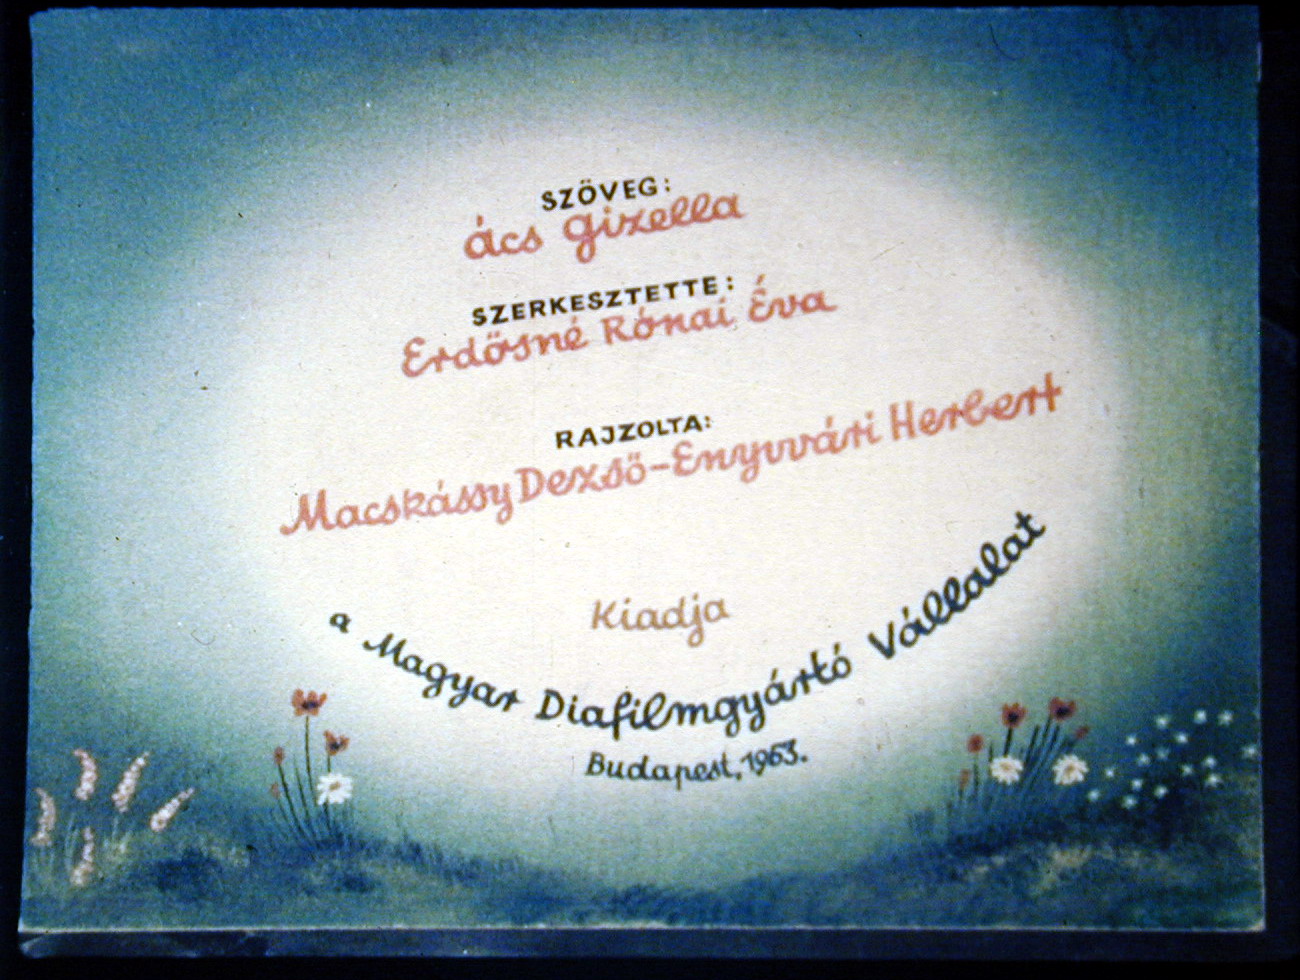 SZÖVEG:
Ács Gizella
SZERKESZTETTE:
Erdősné Rónai Éva
RAJZOLTA:
Macskássy Dezső-Enyvvári Herbert
Kiadja
a Magyar Diafilmgyártó Vállalat
Budapest, 1963.